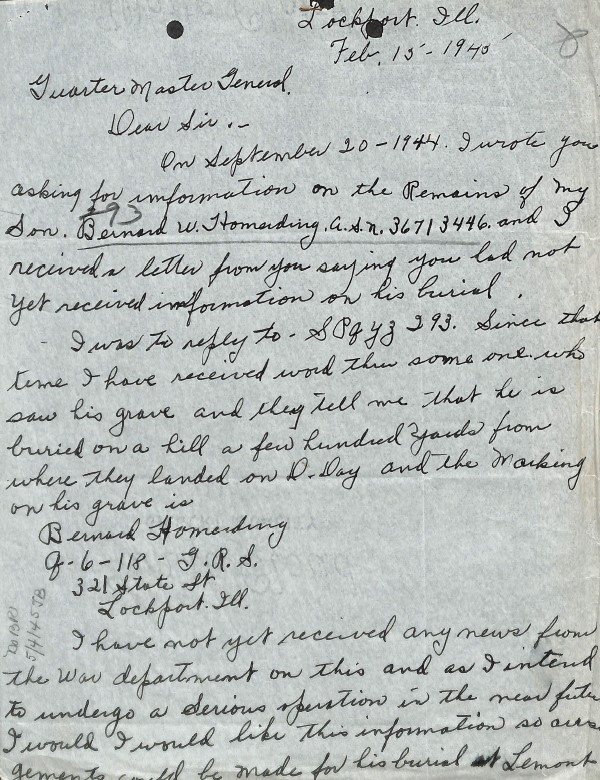 Lockport. Ill.
Feb. 15 - 1945
8
Quarter Master General.
Dear Sir.-
On September 20-1944. I wrote you
asking for imformation on the Remains of my
293
Son. Bernard W. Homerding. A.S.N. 36713446. and I
received a letter from you saying you had not
yet received information on his burial.
- I was to reply to - SPQYZ 293. Since that
time I have received word thru some one who
saw his grave and they tell me that he is
buried on a hill a few hundred yards from
where they landed on D-Day and the Marking
on his grave is
Bernard Homerding
Q-6-118 - G.R.S.
321 State St
Lockport. Ill.
5/4/45 JB
I have not yet received any news from
the War department on this and as I intend
to undergo a Serious operation in the near future
I would I would like this information so arran
gements could be made for his burial at Lemont